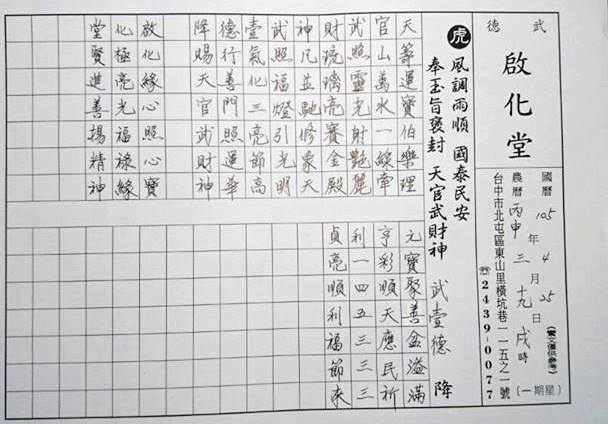 武德
啟化堂
國曆 105 年 4 月 25 日
農曆 丙申 三 十九 戌時
星期(一)
台中市北屯區東山里橫坑巷一一五之一號
☎2439-0077
虎 風調雨順 國泰民安
奉玉旨褒封 天官武財神 武壹德 降
天等運寶伯樂理
官山萬水一線牽
武照靈光射艷麗
財琉璃亮賽金殿
神凡並馳修象天
武照福燈引光明
壹氣化三亮節高
德行善門照運華
降賜天官武財神
啟化緣心照心寶
化極亮光福祿緣
堂賢進善揚精神
元寶聚善盆溢滿
亨彩順天應民祈
利一四五三三三
貞亮順利福節來